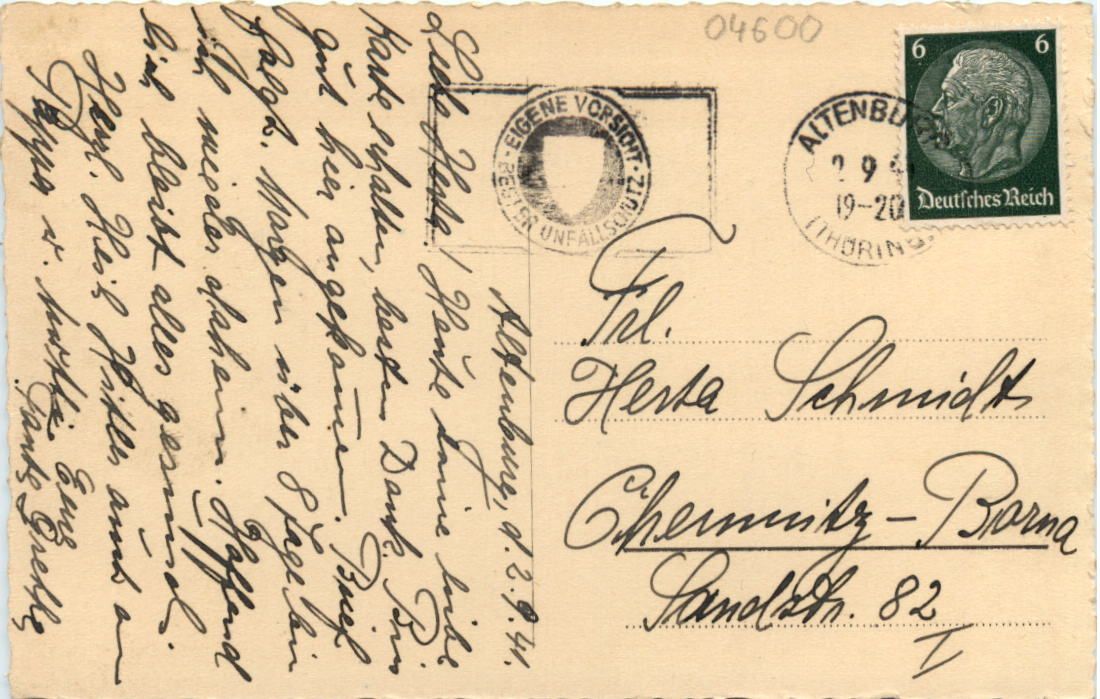 04600
6 6
Deutsches Reich
ALTENBURG
2 9 4
19-20
(THÜRING.
EIGENE VORSICHT
BESTER UNFALLSCHUTZ
Altenburg, d. 2.9.41.
Liebe Herta! Heute deine liebe
Karte erhalten, besten Dank. Bin
gut hier angekommen. Brief
folgt. Morgen über 8 Tage bin
ich wieder daheim. Hoffend
hier bleibt alles gesund.
Herzl. Heil Hitler auch an
Pappa u. Mutti Eure
Tante Grethe
Frl.
Herta Schmidt
Chemnitz-Borna
Sandstr. 82
I